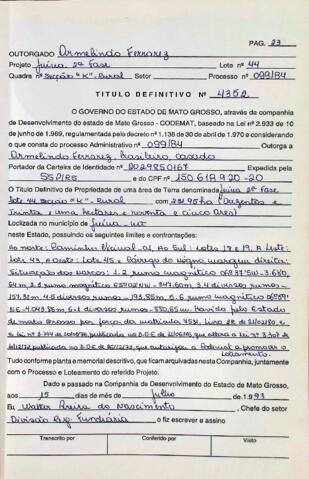 PAG. 23
OUTORGADO Armelindo Ferrarez
Projeto Juína 2ª Fase Lote nº 44
Quadra nº Secção "K"-Rural Setor Processo nº 099/84
TITULO DEFINITIVO Nº 4352
O GOVERNO DO ESTADO DE MATO GROSSO, através da companhia
de Desenvolvimento do estado de Mato Grosso - CODEMAT, baseado na Lei nº 2.933 de 10
de junho de 1969, regulamentada pelo decreto nº 1.138 de 30 de abril de 1970 e considerando o
que consta do processo Administrativo nº 099/84 Outorga a
Armelindo Ferrarez, brasileiro, casado
Portador da Carteira de Identidade nº 2029850167 Expedida pela
SSP/RS e do CPF nº 150 618 920-20
O Titulo Definitivo de Propriedade de uma área de Terra denominada Juína 2ª Fase
lote 44 Secção "K" - Rural com 231.95ha (Duzentos e
Trinta e uma hectares e noventa e cinco ares)
Localizada no município de Juína - MT
Deste Estado, possuindo os seguintes limites e confrontações:
Ao norte: Caminho Vicinal-01, Ao Sul: Lotes 17 e 19. A Leste:
Lote 43, A Oeste: Lote 45 e Córrego do margem direita.
Situação dos Marcos: 1.2 rumo magnético
m, 2.3 rumo magnético 3.4 diversos rumos -
4.5 diversos rumos - 5.6 rumo magnético
6.1 diversos rumos - havido pelo Estado
de mato Grosso por força da matrícula
a Lei nº publicada no D.O.E. de que altera a lei nº
publicada no D.O.E. de que autoriza a Codemat a promover o
Loteamento.
Tudo conforme planta e memorial descritivo, que ficam arquivadas nesta Companhia, juntamente
com o Processo e Loteamento do referido Projeto.
Dado e passado na Companhia de Desenvolvimento do Estado de Mato Grosso,
aos 15 dias do mês de julho de 1993
Eu, Walter Pereira do Nascimento, Chefe do setor
Divisão Reg. Fundiária o fiz escrever e assino
Transcrito por Conferido por Visto